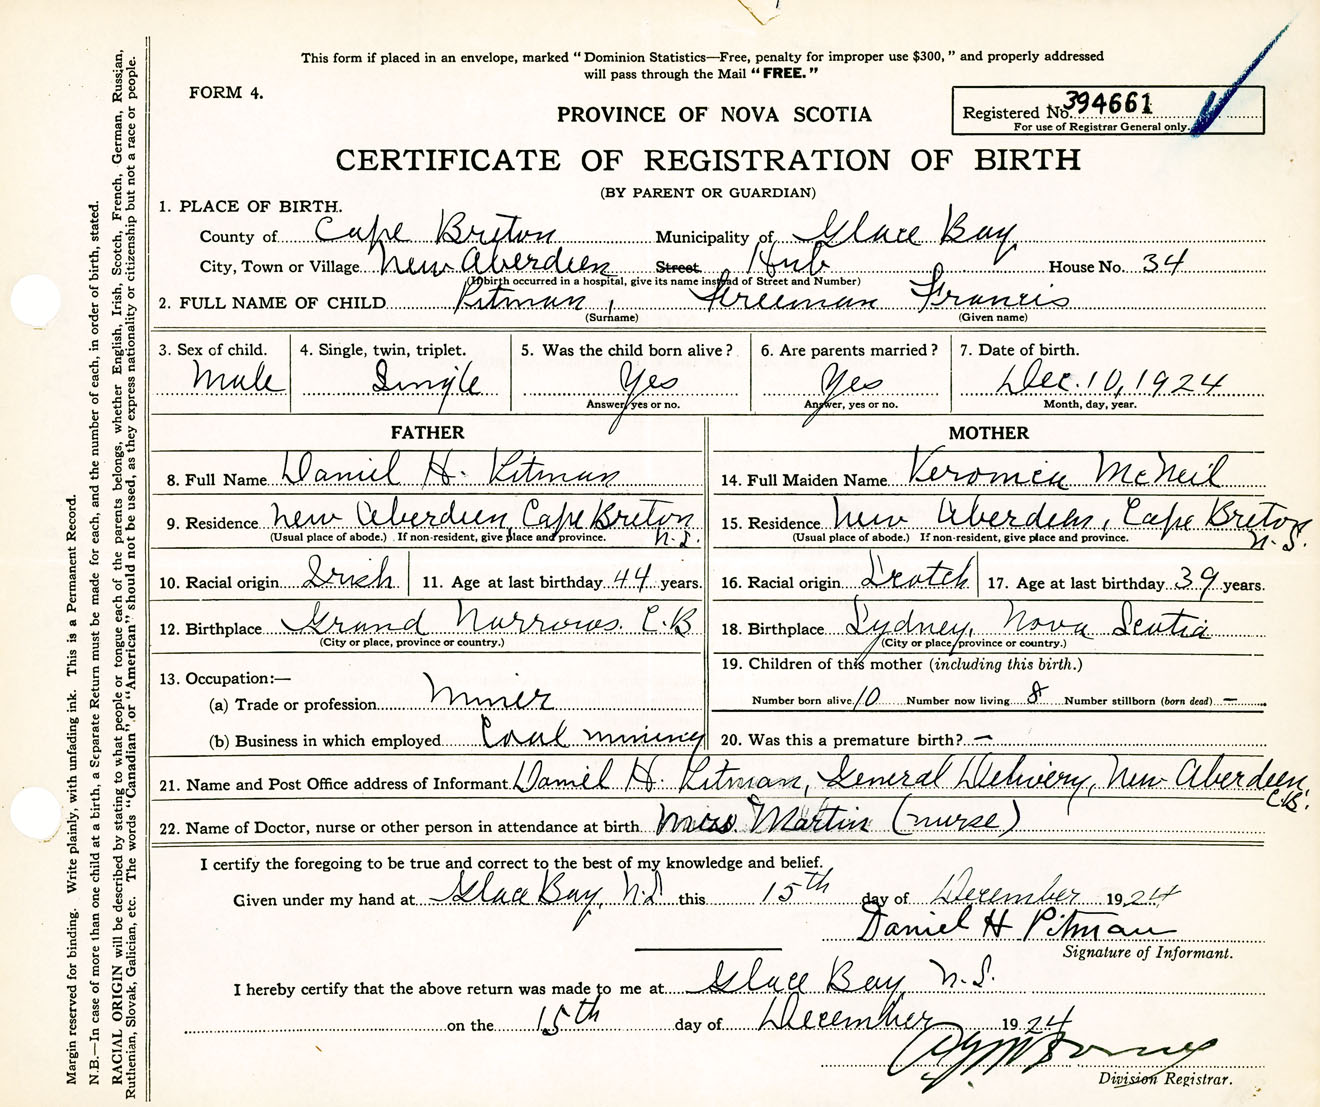 This form if placed in an envelope, marked "Dominion Statistics—Free, penalty for improper use $300," and properly addressed
will pass through the Mail "FREE."
FORM 4.
PROVINCE OF NOVA SCOTIA
Registered No. 394661
For use of Registrar General only.
CERTIFICATE OF REGISTRATION OF BIRTH
(BY PARENT OR GUARDIAN)
1. PLACE OF BIRTH.
County of Cape Breton Municipality of Glace Bay
City, Town or Village New Aberdeen Street Hub House No. 34
(If birth occurred in a hospital, give its name instead of Street and Number)
2. FULL NAME OF CHILD Pitman, Freeman Francis
(Surname) (Given name)
3. Sex of child. 4. Single, twin, triplet. 5. Was the child born alive? 6. Are parents married? 7. Date of birth.
Male Single Yes Yes Dec. 10, 1924
Answer, yes or no. Answer, yes or no. Month, day, year.
FATHER MOTHER
8. Full Name Daniel H. Pitman 14. Full Maiden Name Veronica McNeil
9. Residence New Aberdeen, Cape Breton N.S. 15. Residence New Aberdeen, Cape Breton N.S.
(Usual place of abode.) If non-resident, give place and province. (Usual place of abode.) If non-resident, give place and province.
10. Racial origin Irish 11. Age at last birthday 44 years. 16. Racial origin Scotch 17. Age at last birthday 39 years.
12. Birthplace Grand Narrows. C.B 18. Birthplace Sydney, Nova Scotia
(City or place, province or country.) (City or place, province or country.)
13. Occupation:— 19. Children of this mother (including this birth.)
(a) Trade or profession Miner Number born alive 10 Number now living 8 Number stillborn (born dead) —
(b) Business in which employed Coal mining 20. Was this a premature birth? —
21. Name and Post Office address of Informant Daniel H. Pitman, General Delivery, New Aberdeen, C.B.
22. Name of Doctor, nurse or other person in attendance at birth Martin (nurse)
I certify the foregoing to be true and correct to the best of my knowledge and belief.
Given under my hand at Glace Bay, N.S. this 15th day of December 1924
Daniel H Pitman
Signature of Informant.
I hereby certify that the above return was made to me at Glace Bay N.S.
on the 15th day of December 1924
Division Registrar.
Margin reserved for binding. Write plainly, with unfading ink. This is a Permanent Record.
N.B.—In case of more than one child at a birth, a Separate Return must be made for each, and the number of each, in order of birth, stated.
RACIAL ORIGIN will be described by stating to what people or tongue each of the parents belongs, whether English, Irish, Scotch, French, German, Russian,
Ruthenian, Slovak, Galician, etc. The words "Canadian" or "American" should not be used, as they express nationality or citizenship but not a race or people.